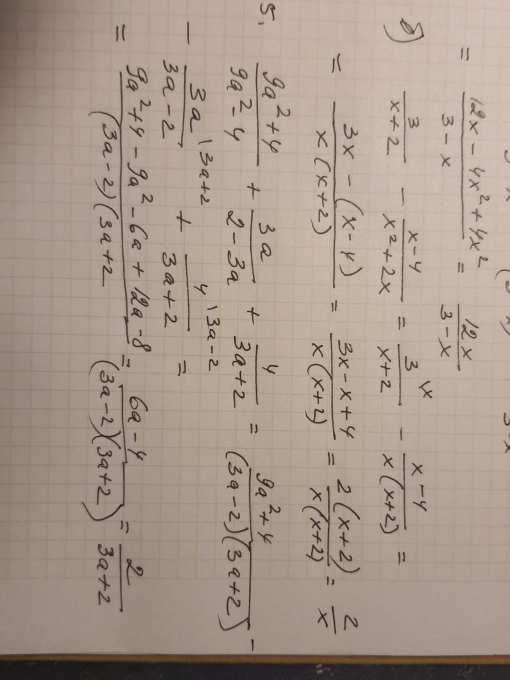 = (12x - 4x² + 4x²)/(3 - x) = 12x/(3 - x)
б) 3/(x+2) - (x-4)/(x²+2x) = 3\x/(x+2) - (x-4)/(x(x+2)) =
= (3x - (x-4))/(x(x+2)) = (3x-x+4)/(x(x+2)) = 2(x+2)/(x(x+2)) = 2/x
5. (9a²+4)/(9a²-4) + 3a/(2-3a) + 4/(3a+2) = (9a²+4)/((3a-2)(3a+2)) -
- 3a\3a+2/(3a-2) + 4\3a-2/(3a+2) =
= (9a²+4-9a²-6a+12a-8)/((3a-2)(3a+2) = (6a-4)/((3a-2)(3a+2)) = 2/(3a+2)